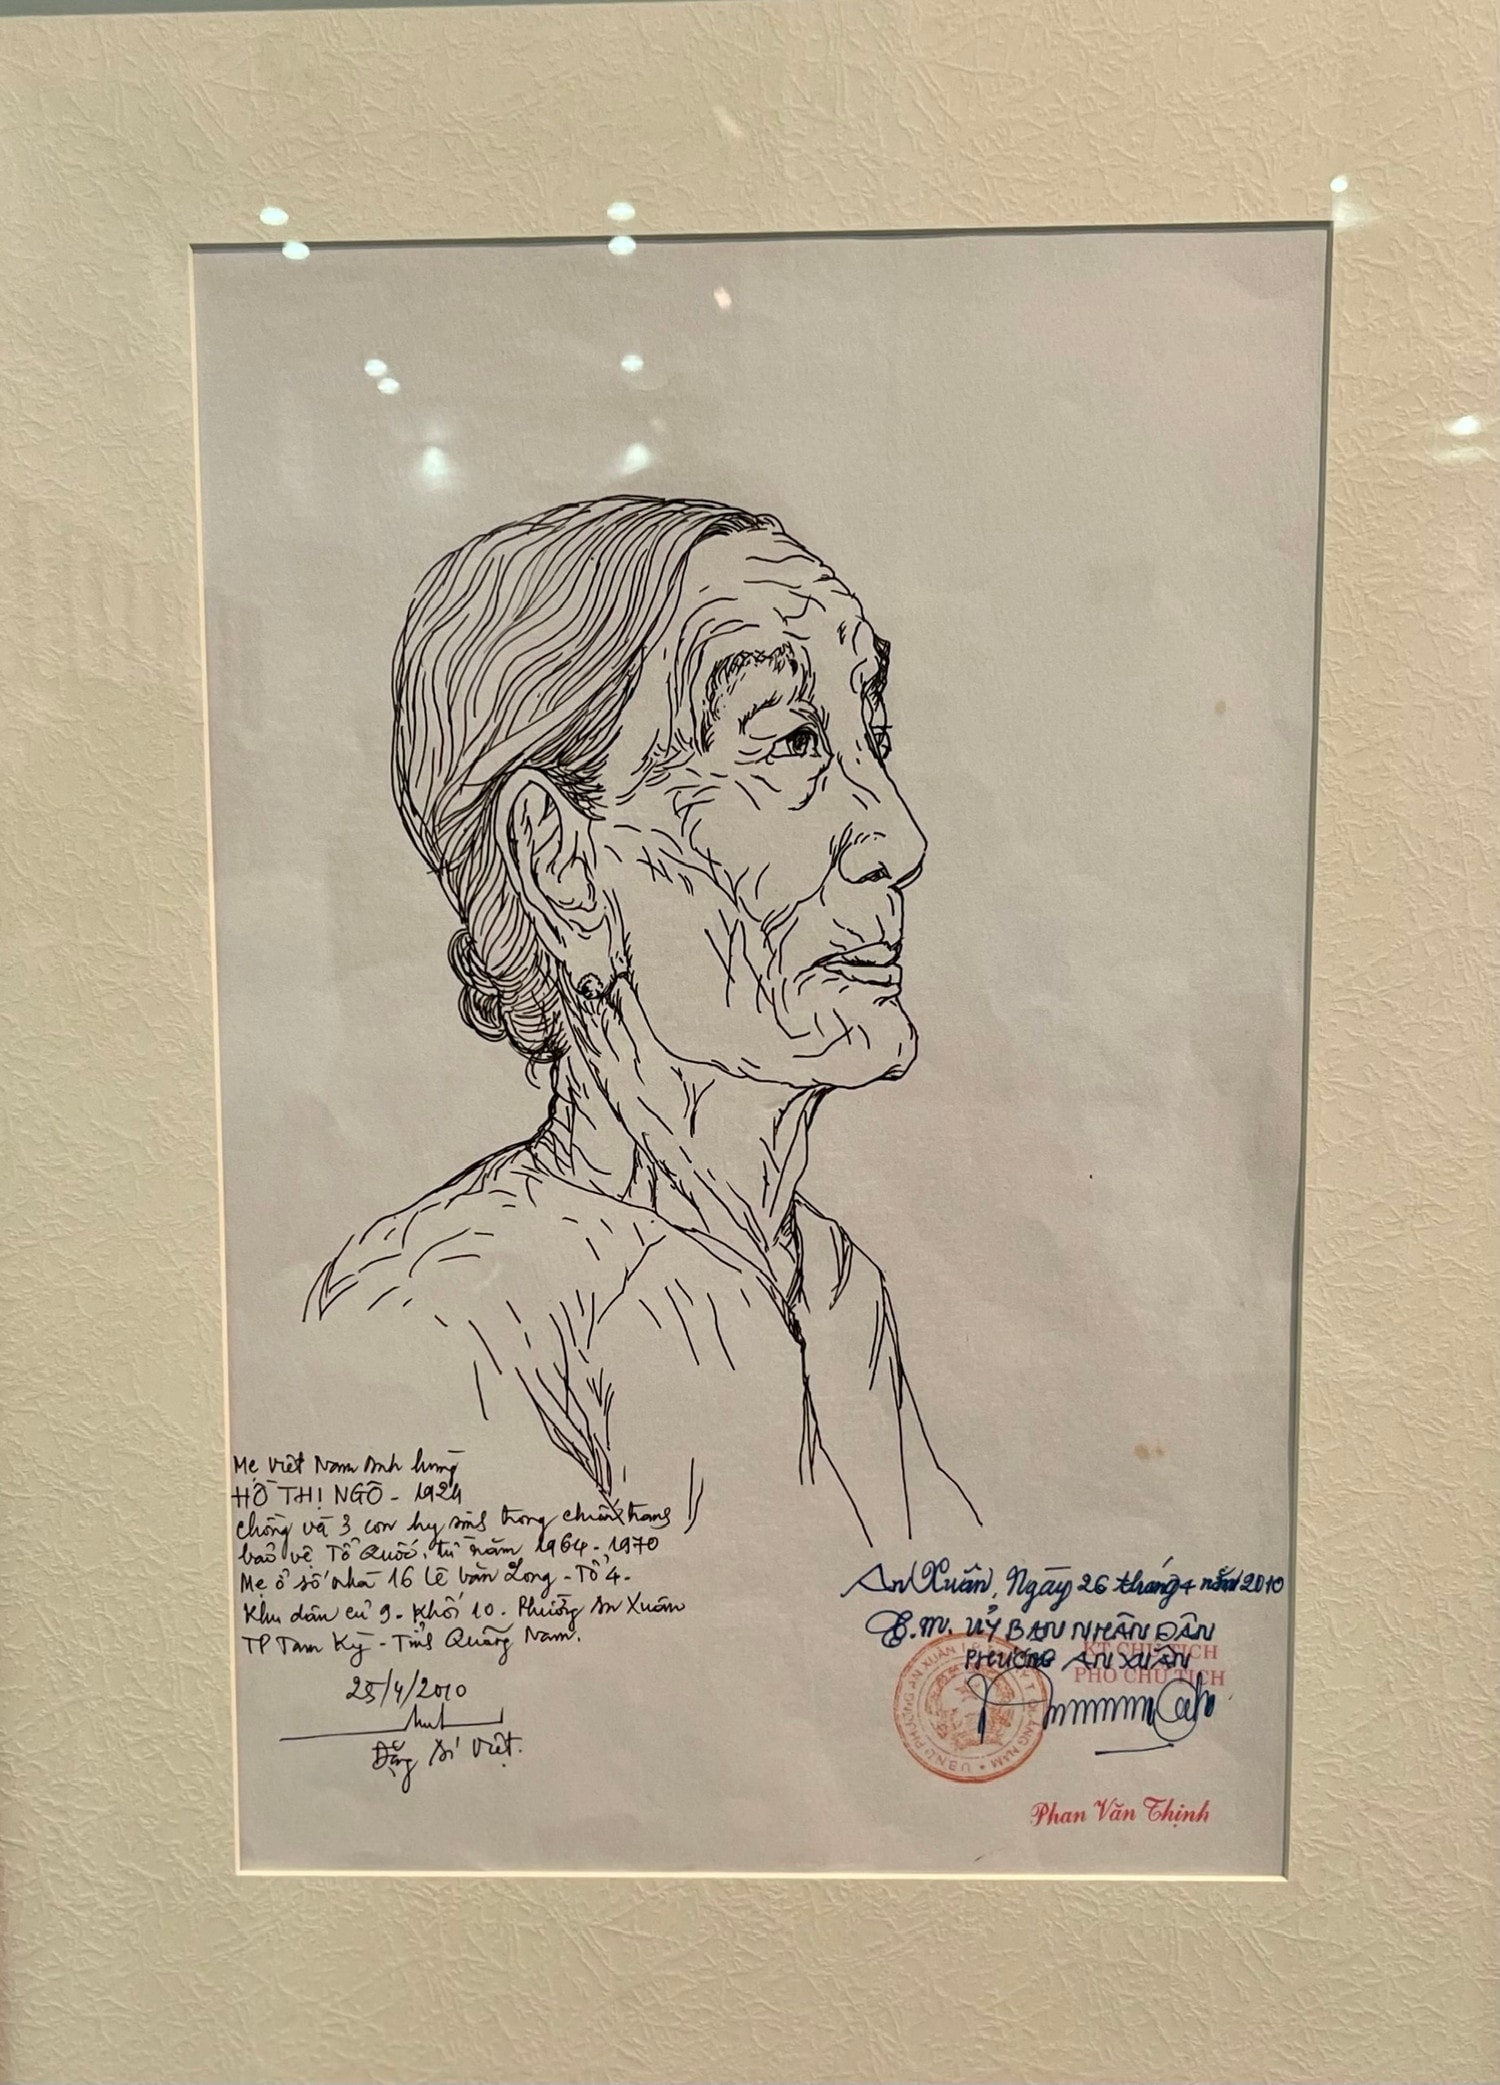 Mẹ Việt Nam Anh hùng
HỒ THỊ NGÔ - 1924
chồng và 3 con hy sinh trong chiến tranh
bảo vệ Tổ Quốc, từ năm 1964 - 1970
Mẹ ở số nhà 16 Lê Văn Long - Tổ 4 -
Khu dân cư 9 - Khối 10 - Phường An Xuân
TP Tam Kỳ - Tỉnh Quảng Nam.
25/4/2010
Đặng Ái Việt.
An Xuân, Ngày 26 tháng 4 năm 2010
T.M. ỦY BAN NHÂN DÂN
PHƯỜNG AN XUÂN
KT. CHỦ TỊCH
PHÓ CHỦ TỊCH
Phan Văn Thịnh